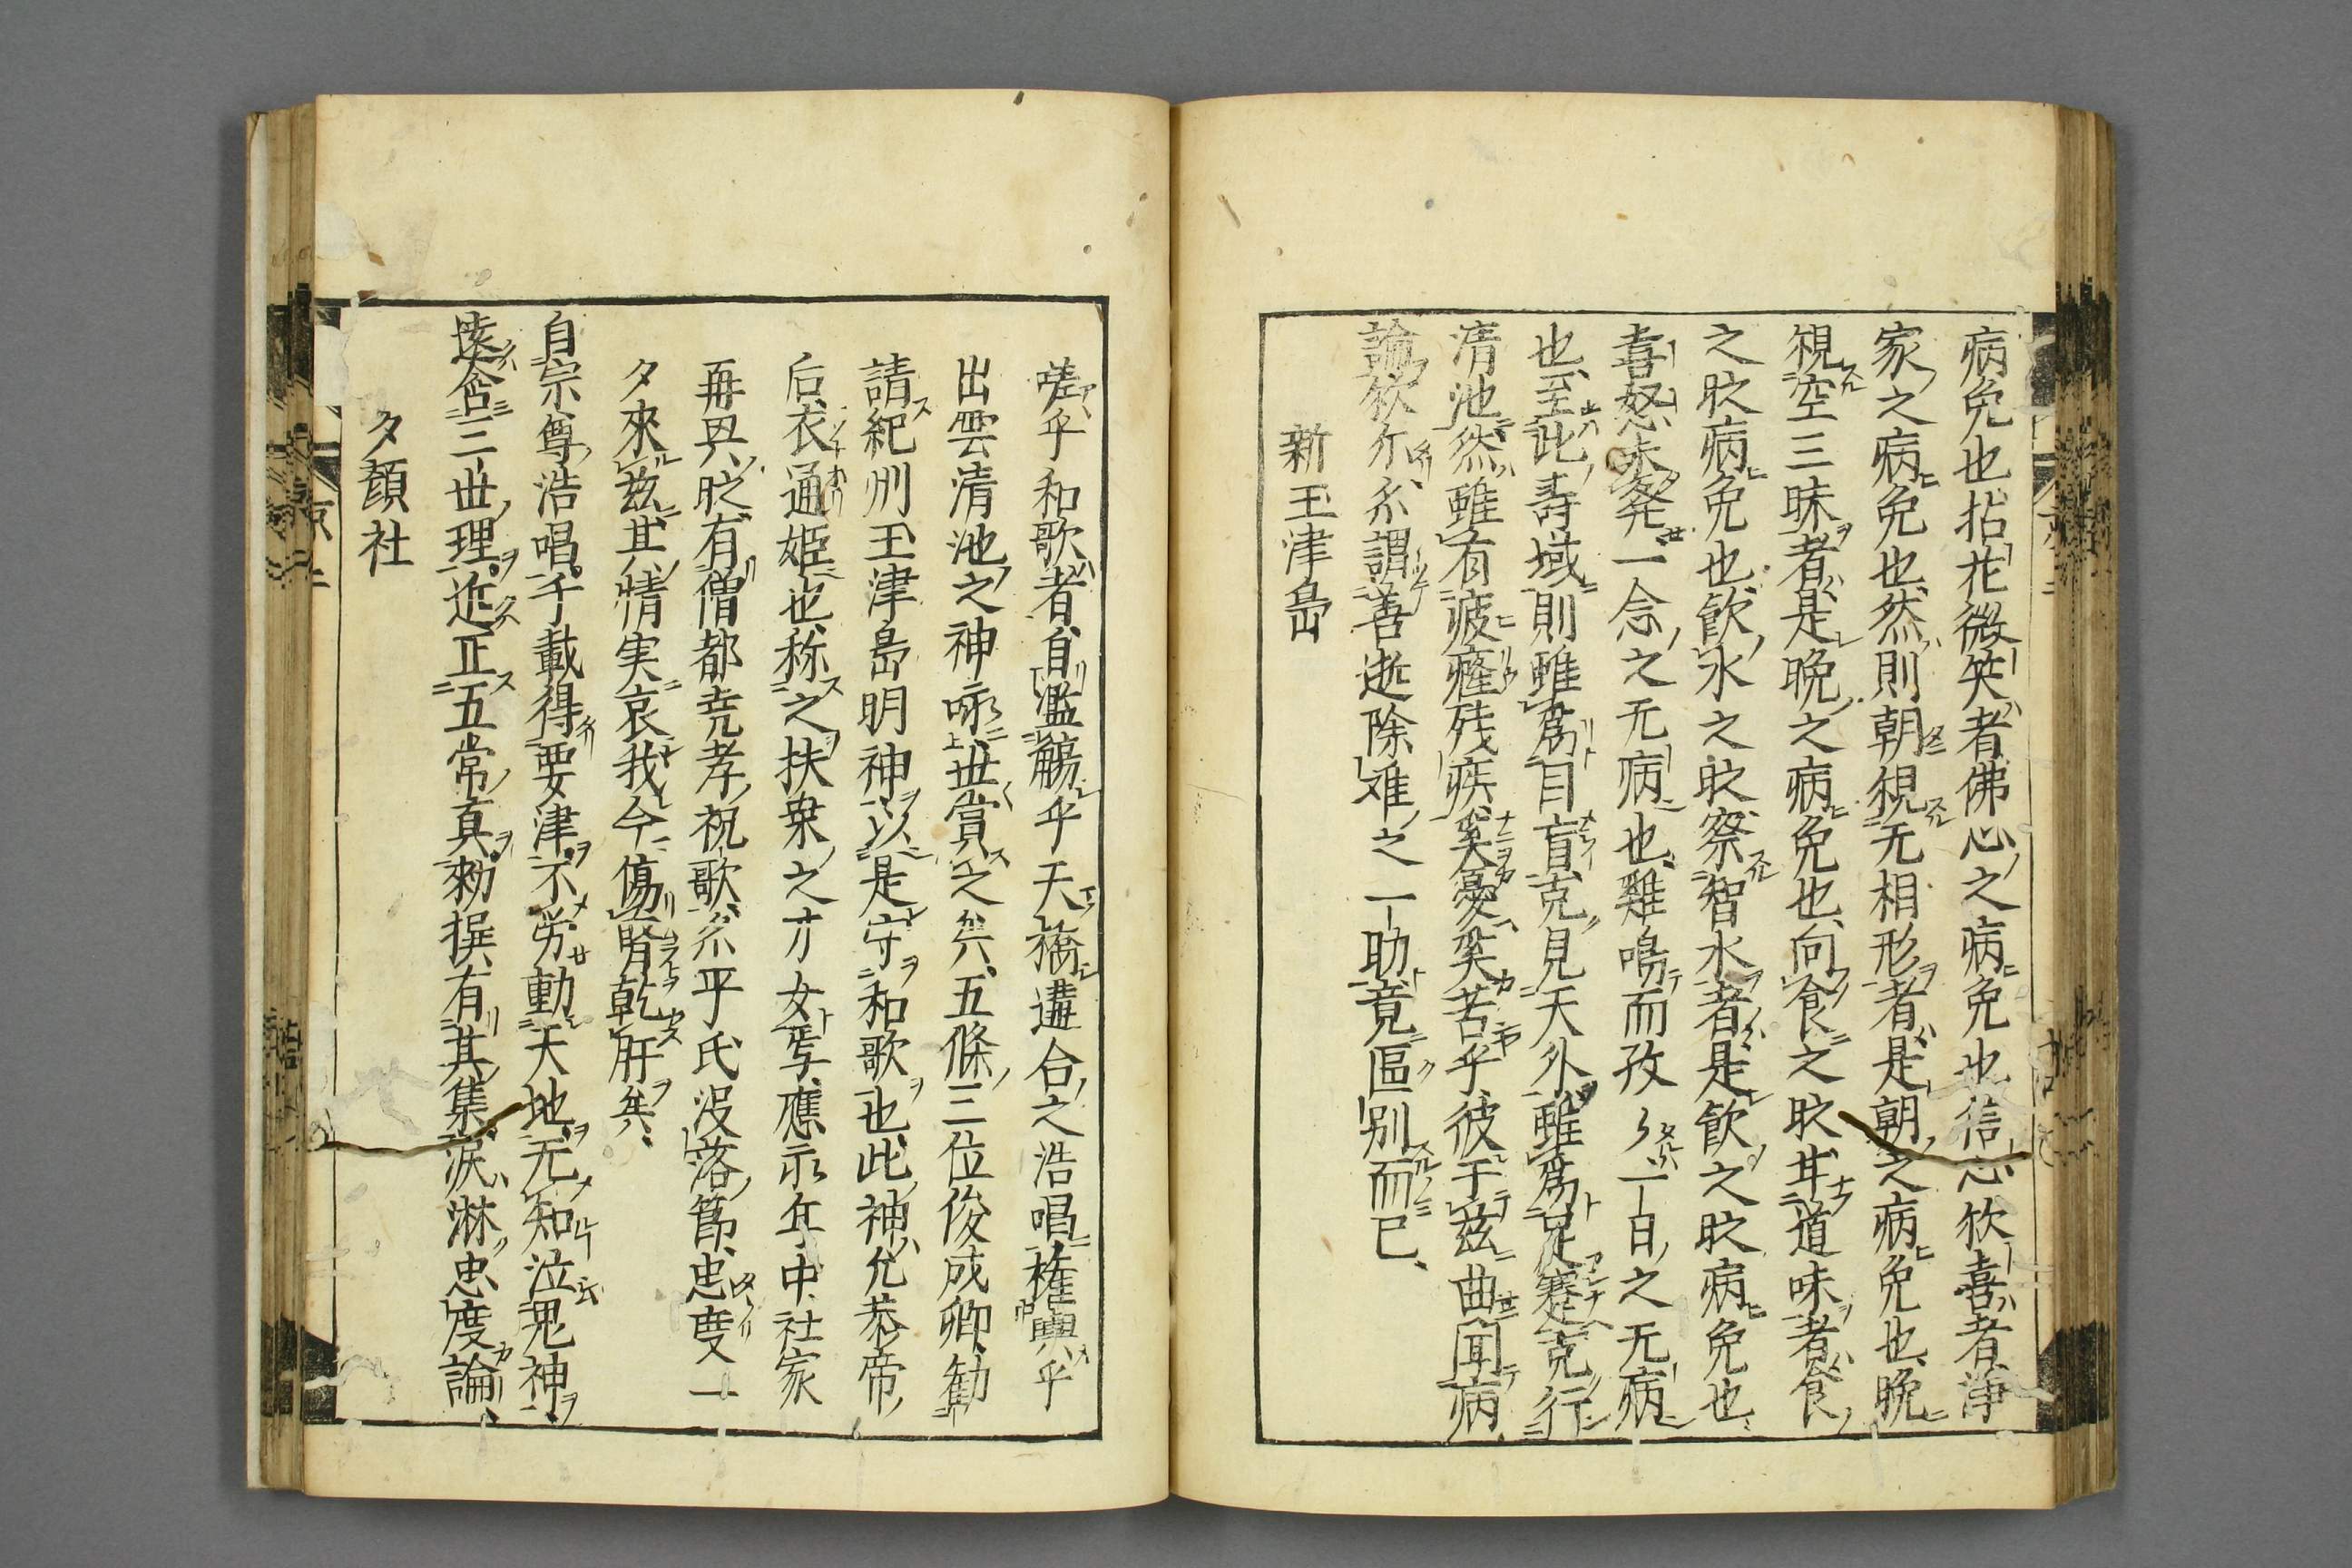 病免也拈花微笑者佛心之病免也信心欣喜者淨
家之病免也然則朝視无相形者是朝之病免也晩
視空三昧者是晩之病免也向食之时甘道味者食
之时病免也飲水之时察智水者是飲之时病免也
喜怒未発一念之无病也雞鳴而孜〻一日之无病
也至此壽域則雖爲目盲克見天外雖爲足蹇克行
清池然雖有疲癃残疾奚憂奚苦乎彼于茲曲聞病
論欤尓不謂善逝除难之一助竟區别而已
新玉津島
嗟乎和歌者自濫觴乎天橋遘合之浩唱権輿乎
出雲清池之神咏世賞之矣五條三位俊成卿勧
請紀州玉津島明神以是守和歌也此神允恭帝
后衣通姫也称之扶桒之才女焉應永年中社家
再
时有僧都尭孝祝歌
平氏没落節忠度一
夕來茲其情実哀我今傷腎乾肝矣
自宗尊浩唱千載得要津不労動天地无知泣鬼神
遠含三世理近正五常真勅撰有其集淚淋忠度論
夕顔社